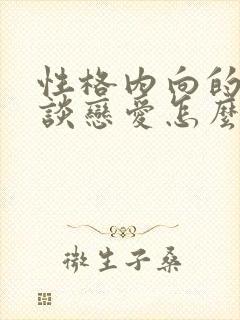 性格内向的
談戀愛怎麼
微生子桑